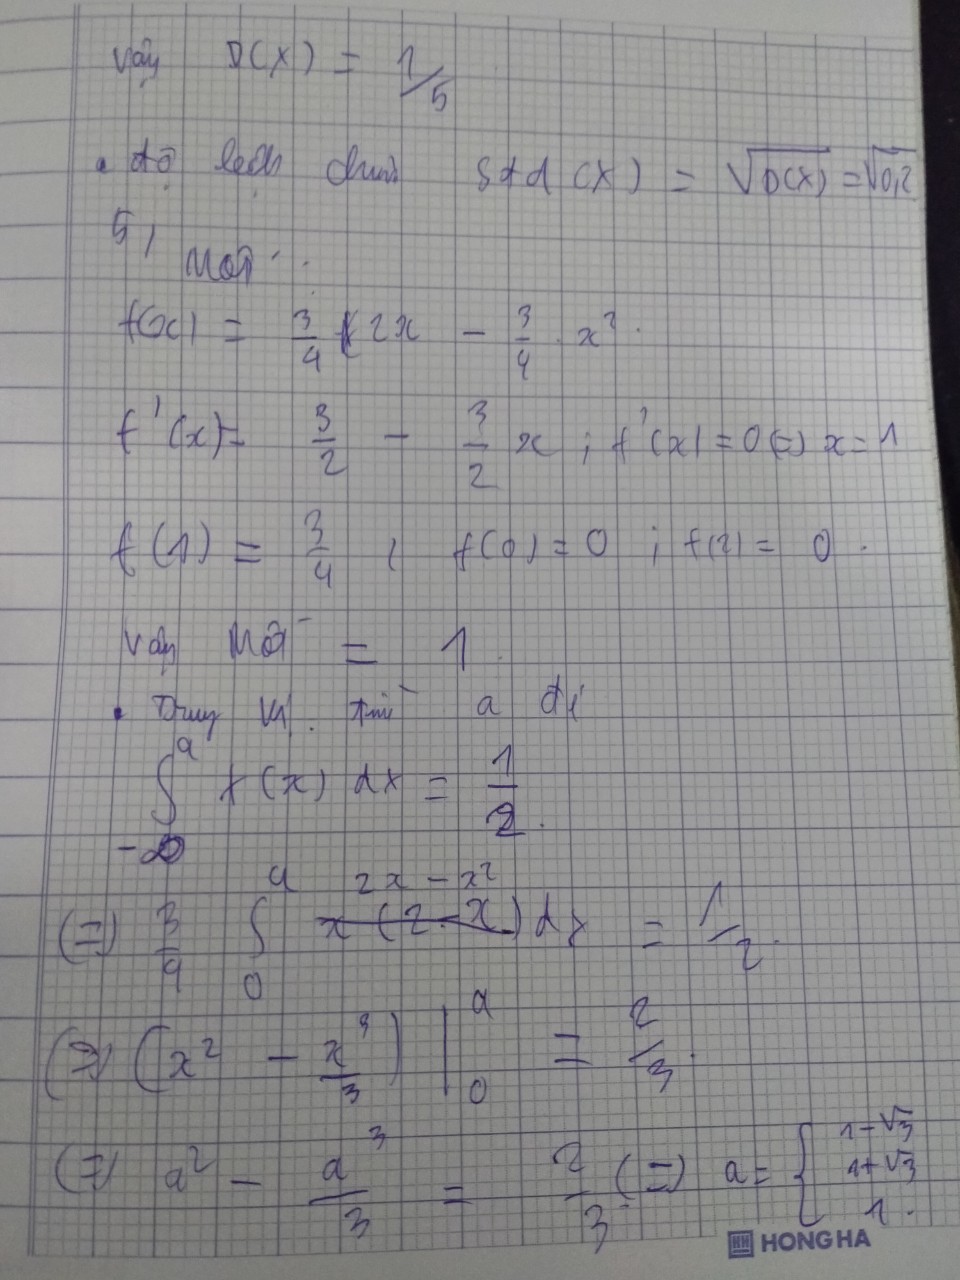 Vậy D(X) = 1/5
• độ lệch chuẩn Std(X) = √D(X) = √0,2
5,
Mốt
f(x) = 3/4 2x - 3/4 . x².
f'(x) = 3/2 - 3/2 x ; f'(x) = 0 (=) x = 1
f(1) = 3/4 ; f(0) = 0 ; f(2) = 0.
Vậy Mốt = 1.
• Trung vị. tìm a để
∫_{-∞}^{a} f(x) dx = 1/2.
(=) 3/4 ∫_{0}^{a} 2x - x² dx = 1/2.
(=) (x² - x³/3) |_{0}^{a} = 2/3.
(=) a² - a³/3 = 2/3 (=) a = { 1-√3
1+√3
1.
HONG HA